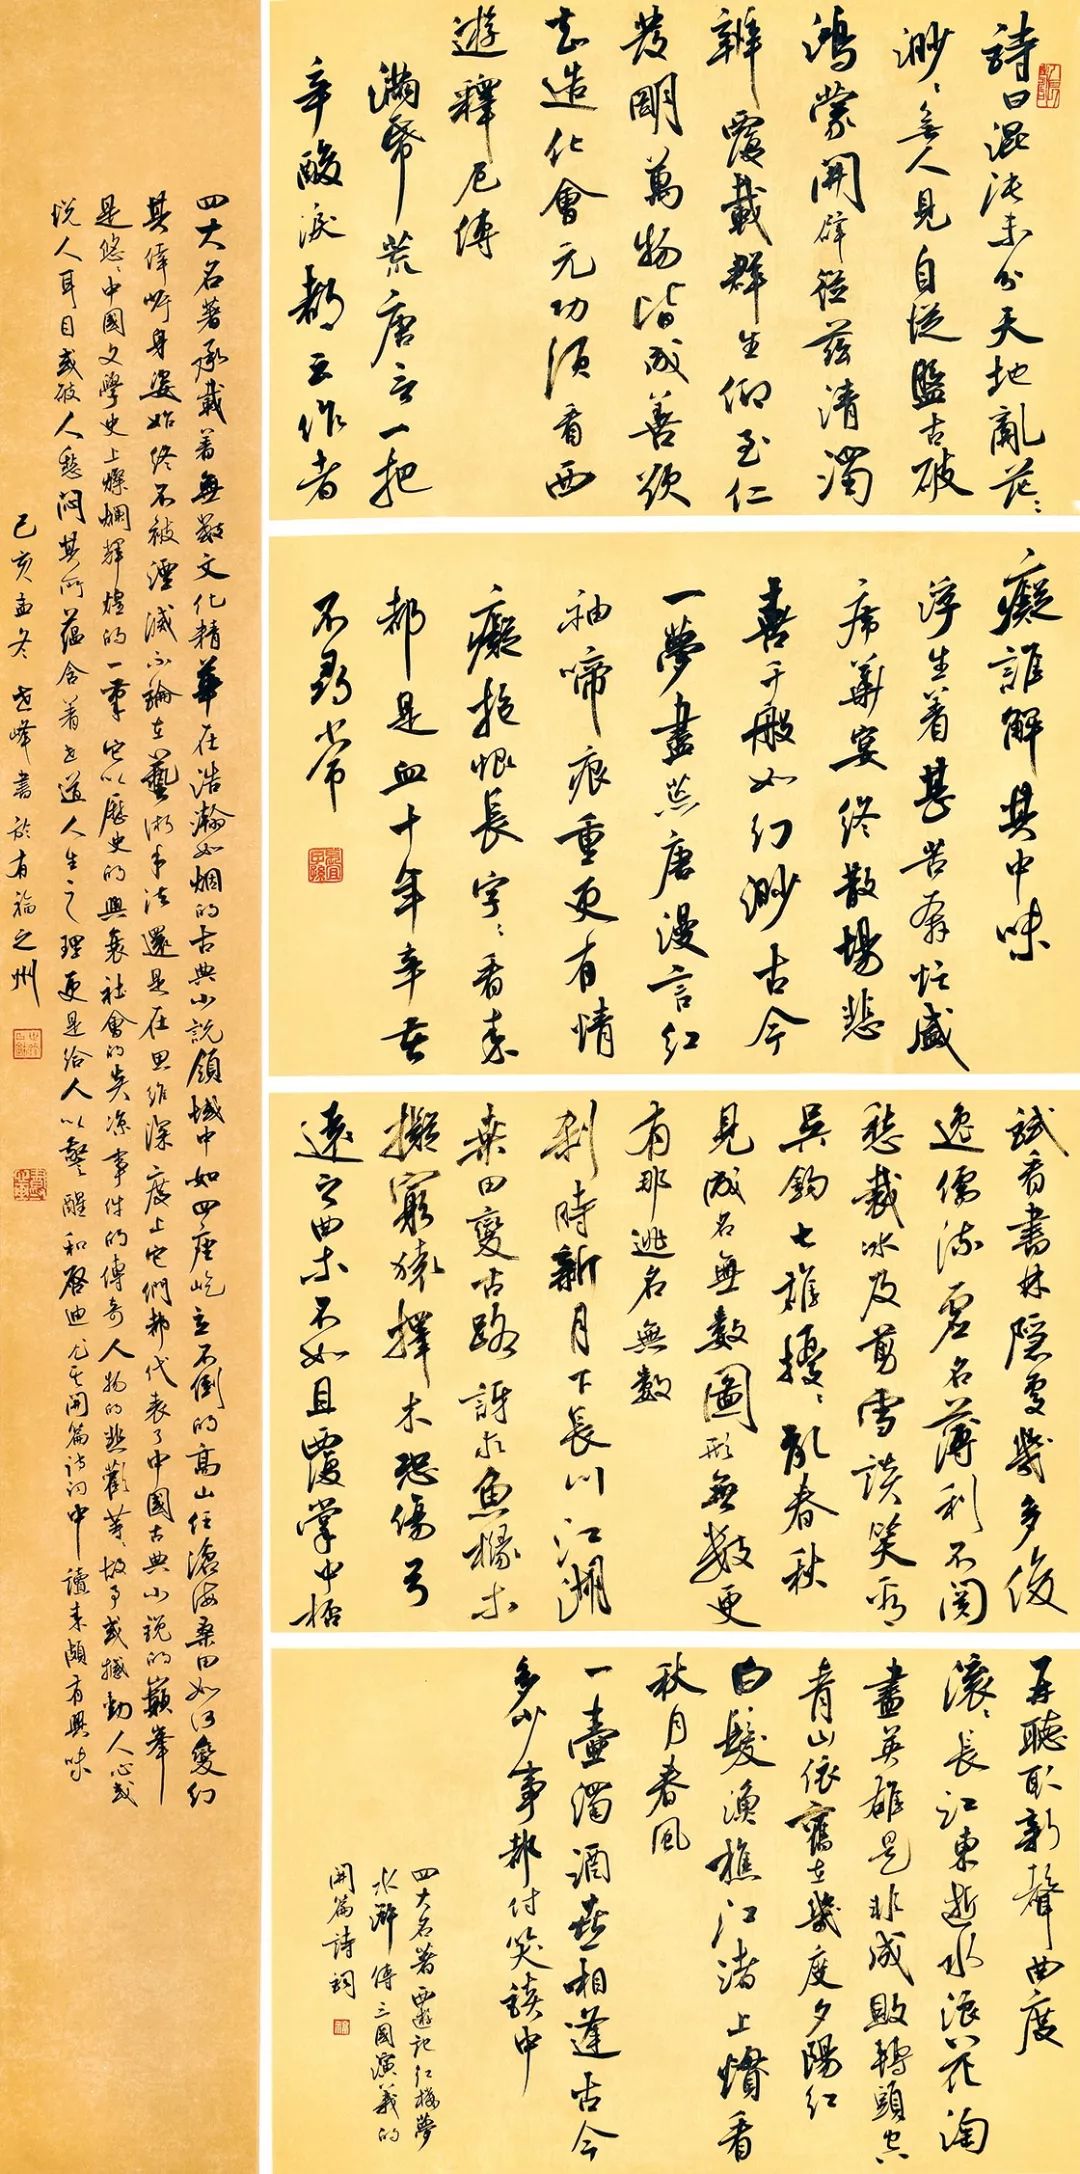 詩曰混沌未分天地亂茫々
渺々無人見自從盤古破
鴻蒙開辟從茲清濁
辨覆載群生仰至仁
發明萬物皆成善欲
知造化會元功須看西
遊釋厄傳
滿紙荒唐言一把
辛酸淚都云作者
癡誰解其中味
浮生着甚苦奔忙盛
席華宴終散場悲
喜千般如幻渺古今
一夢盡荒唐漫言紅
袖啼痕重更有情
癡抱恨長字々看來
都是血十年辛苦
不尋常
試看書林隱處幾多俊
逸儒流虛名薄利不關
愁裁冰及剪雪談笑看
吳鈎七雄擾々亂春秋
見成名無數圖形無數更
有那逃名無數
刹時新月下長川江湖
桑田變古路訝求魚橼木
擬窮猿擇木恐傷弓
遠之曲木不如且覆掌中杯
再聽取新聲曲度
滾々長江東逝水浪花淘
盡英雄是非成敗轉頭空
青山依舊在幾度夕陽紅
白髮漁樵江渚上慣看
秋月春風
一壺濁酒喜相逢古今
多少事都付笑談中
四大名著西遊記紅樓夢
水滸傳三國演義的
開篇詩詞
四大名著承載着無數文化精華在浩瀚如烟的古典小説領域中如四座屹立不倒的高山任滄海桑田如何變幻
其偉岸身姿始終不被湮滅不論在藝術手法還是在思維深度上它們都代表了中國古典小説的巔峯
是悠々中國文學史上燦爛輝煌的一筆它以歷史的興衰社會的炎凉事件的傳奇人物的悲歡等故事或撼動人心或
悅人耳目或破人愁悶其所蘊含着世道人生之理更是給人以警醒和啓迪尤其開篇詩詞中讀來頗有興味
己亥孟冬 峰書於有福之州